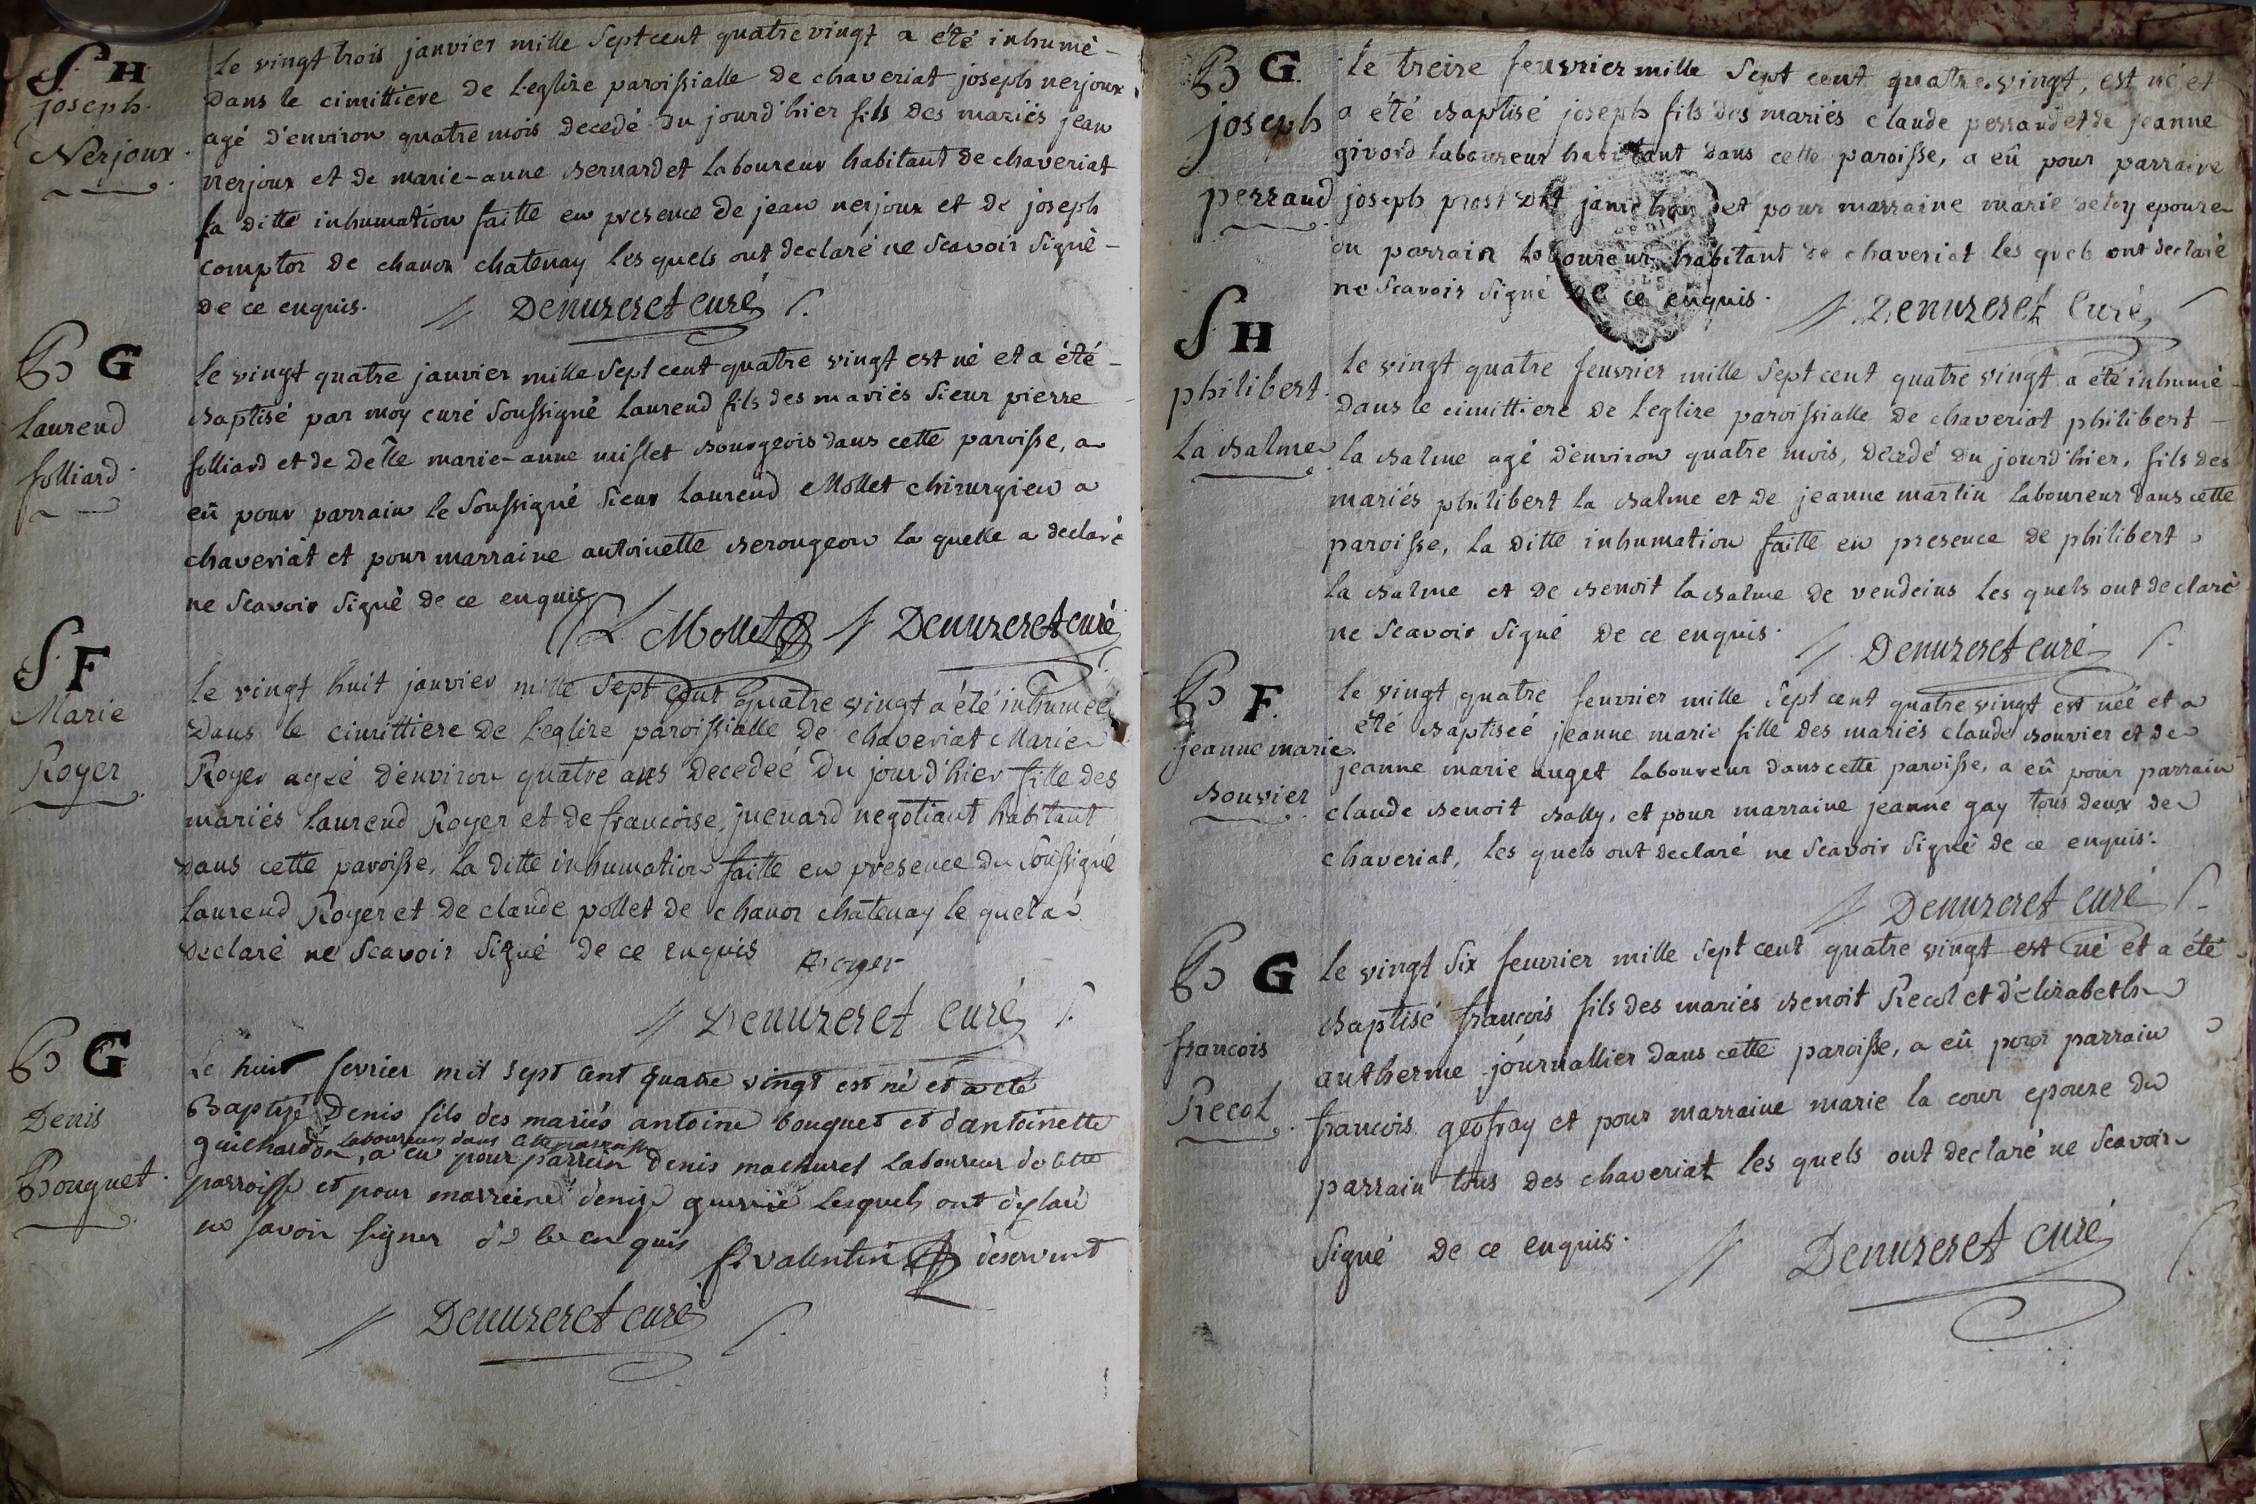 S. H
joseph
Nerjoux
le vingt trois janvier mille sept cent quatre vingt a été inhumé
dans le cimittiere de l'eglize paroissialle de chaveriat joseph nerjoux
agé d'environ quatre mois decedé du jourd'hier fils des mariés jean
nerjoux et de marie-anne bernardet laboureur habitant de chaveriat
la ditte inhumation faitte en presence de jean nerjoux et de joseph
comptor de chanoz chatenay les quels ont declaré ne scavoir signé
de ce enquis. Denuzeret curé
B G
laurend
folliard
le vingt quatre janvier mille sept cent quatre vingt est né et a été
baptisé par moy curé soussigné laurend fils des mariés sieur pierre
folliard et de delle marie-anne bourgeois dans cette paroisse, a
eû pour parrain le soussigné sieur laurend Mollet chirurgien a
chaveriat et pour marraine antoinette berougeon la quelle a declaré
ne scavoir signé de ce enquis
L. Mollet Denuzeret curé
S. F
Marie
Royer
le vingt huit janvier mille sept cent quatre vingt a été inhumeé
dans le cimittiere de l'eglize paroissialle de chaveriat Marie
Royer ageé d'environ quatre ans decedeé du jourd'hier fille des
mariés laurend Royer et de francoise juenard negotiant habitant
dans cette paroisse, la ditte inhumation faitte en presence du soussigné
laurend Royer et de claude pollet de chanoz châtenay le quel a
declaré ne scavoir signé de ce enquis Royer
Denuzeret curé
B G
Denis
Bouquet
Le huit fevrier mil sept cent quatre vingt est né et a eté
Baptisé Denis fils des mariés antoine bouquet et d'antoinette
laboureur dans cette parroisse
guichardon, a eu pour parrein denis machuret laboureur de cette
parroisse et pour marreine denise guerrié lesquels ont declaré
ne savoir signer de ce enquis f. valentin deservent
Denuzeret curé
B G.
joseph
perraud
le treize feuvrier mille sept cent quatre vingt, est né et
a été baptisé joseph fils des mariés claude perraud et de jeanne
givord laboureur habitant dans cette paroisse, a eû pour parraire
joseph prost dit et pour marraine marie epouze
du parrain laboureur habitant de chaveriat les quels ont declaré
ne scavoir signé de ce enquis. Denuzeret Curé
S. H
philibert
la balme
le vingt quatre feuvrier mille sept cent quatre vingt a été inhumé
dans le cimittiere de l'eglize paroissialle de chaveriat philibert
la balme agé d'environ quatre mois, decedé du jourd'hier, fils des
mariés philibert la balme et de jeanne martin laboureur dans cette
paroisse, la ditte inhumation faitte en presence de philibert
la balme et de benoit la balme de vendeins les quels ont declaré
ne scavoir signé de ce enquis. Denuzeret curé
B F.
jeanne marie
bouvier
le vingt quatre feuvrier mille sept cent quatre vingt est neé et a
été baptiseé jeanne marie fille des mariés claude bouvier et de
jeanne marie auget laboureur dans cette paroisse, a eû pour parrain
claude benoit bolly, et pour marraine jeanne gay tous deux de
chaveriat, les quels ont declaré ne scavoir signé de ce enquis.
Denuzeret curé
B G
francois
Recol
le vingt six feuvrier mille sept cent quatre vingt est né et a été
baptisé francois fils des mariés benoit Recol et d'elizabeth
autherme journallier dans cette paroisse, a eû pour parrain
francois geofray et pour marraine marie la cour epouze du
parrain tous des chaveriat les quels ont declaré ne scavoir
signé de ce enquis. Denuzeret curé